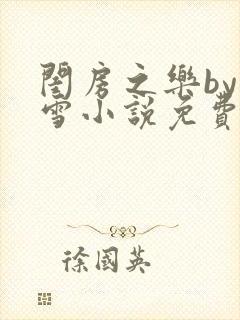 閨房之樂by
雪小說免費
徐國英